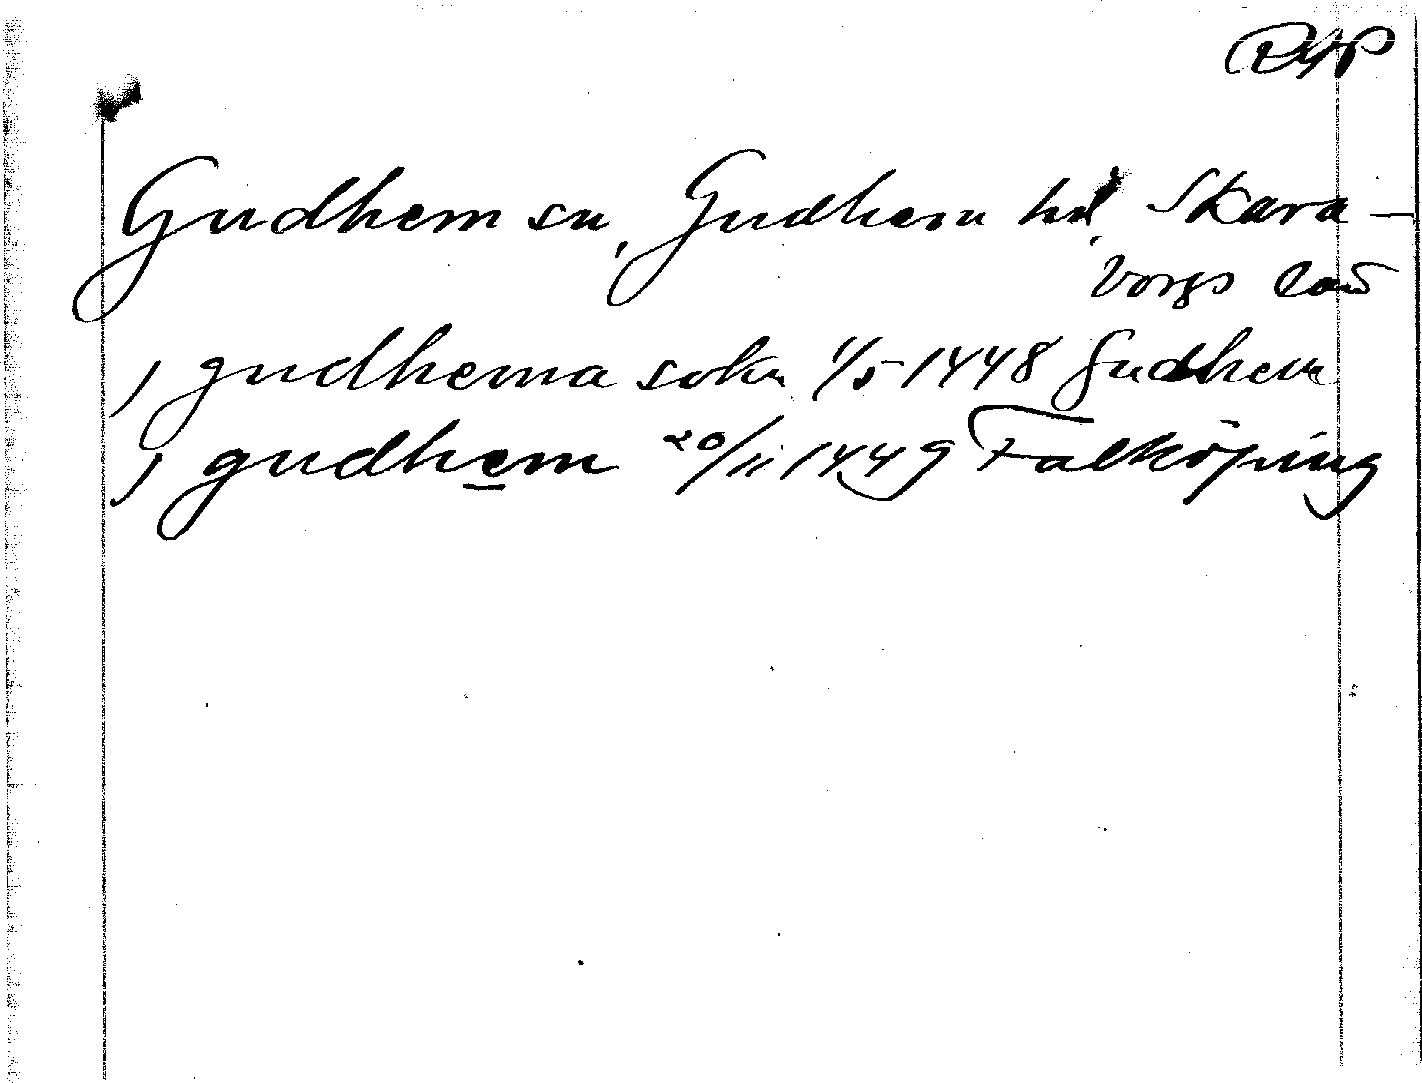 RAP
Gudhem sn, Gudhem hd, Skara-
borgs län
j gudhema sokn 1/5 1448 Gudhem
j gudhem 20/11 1449 Falköping